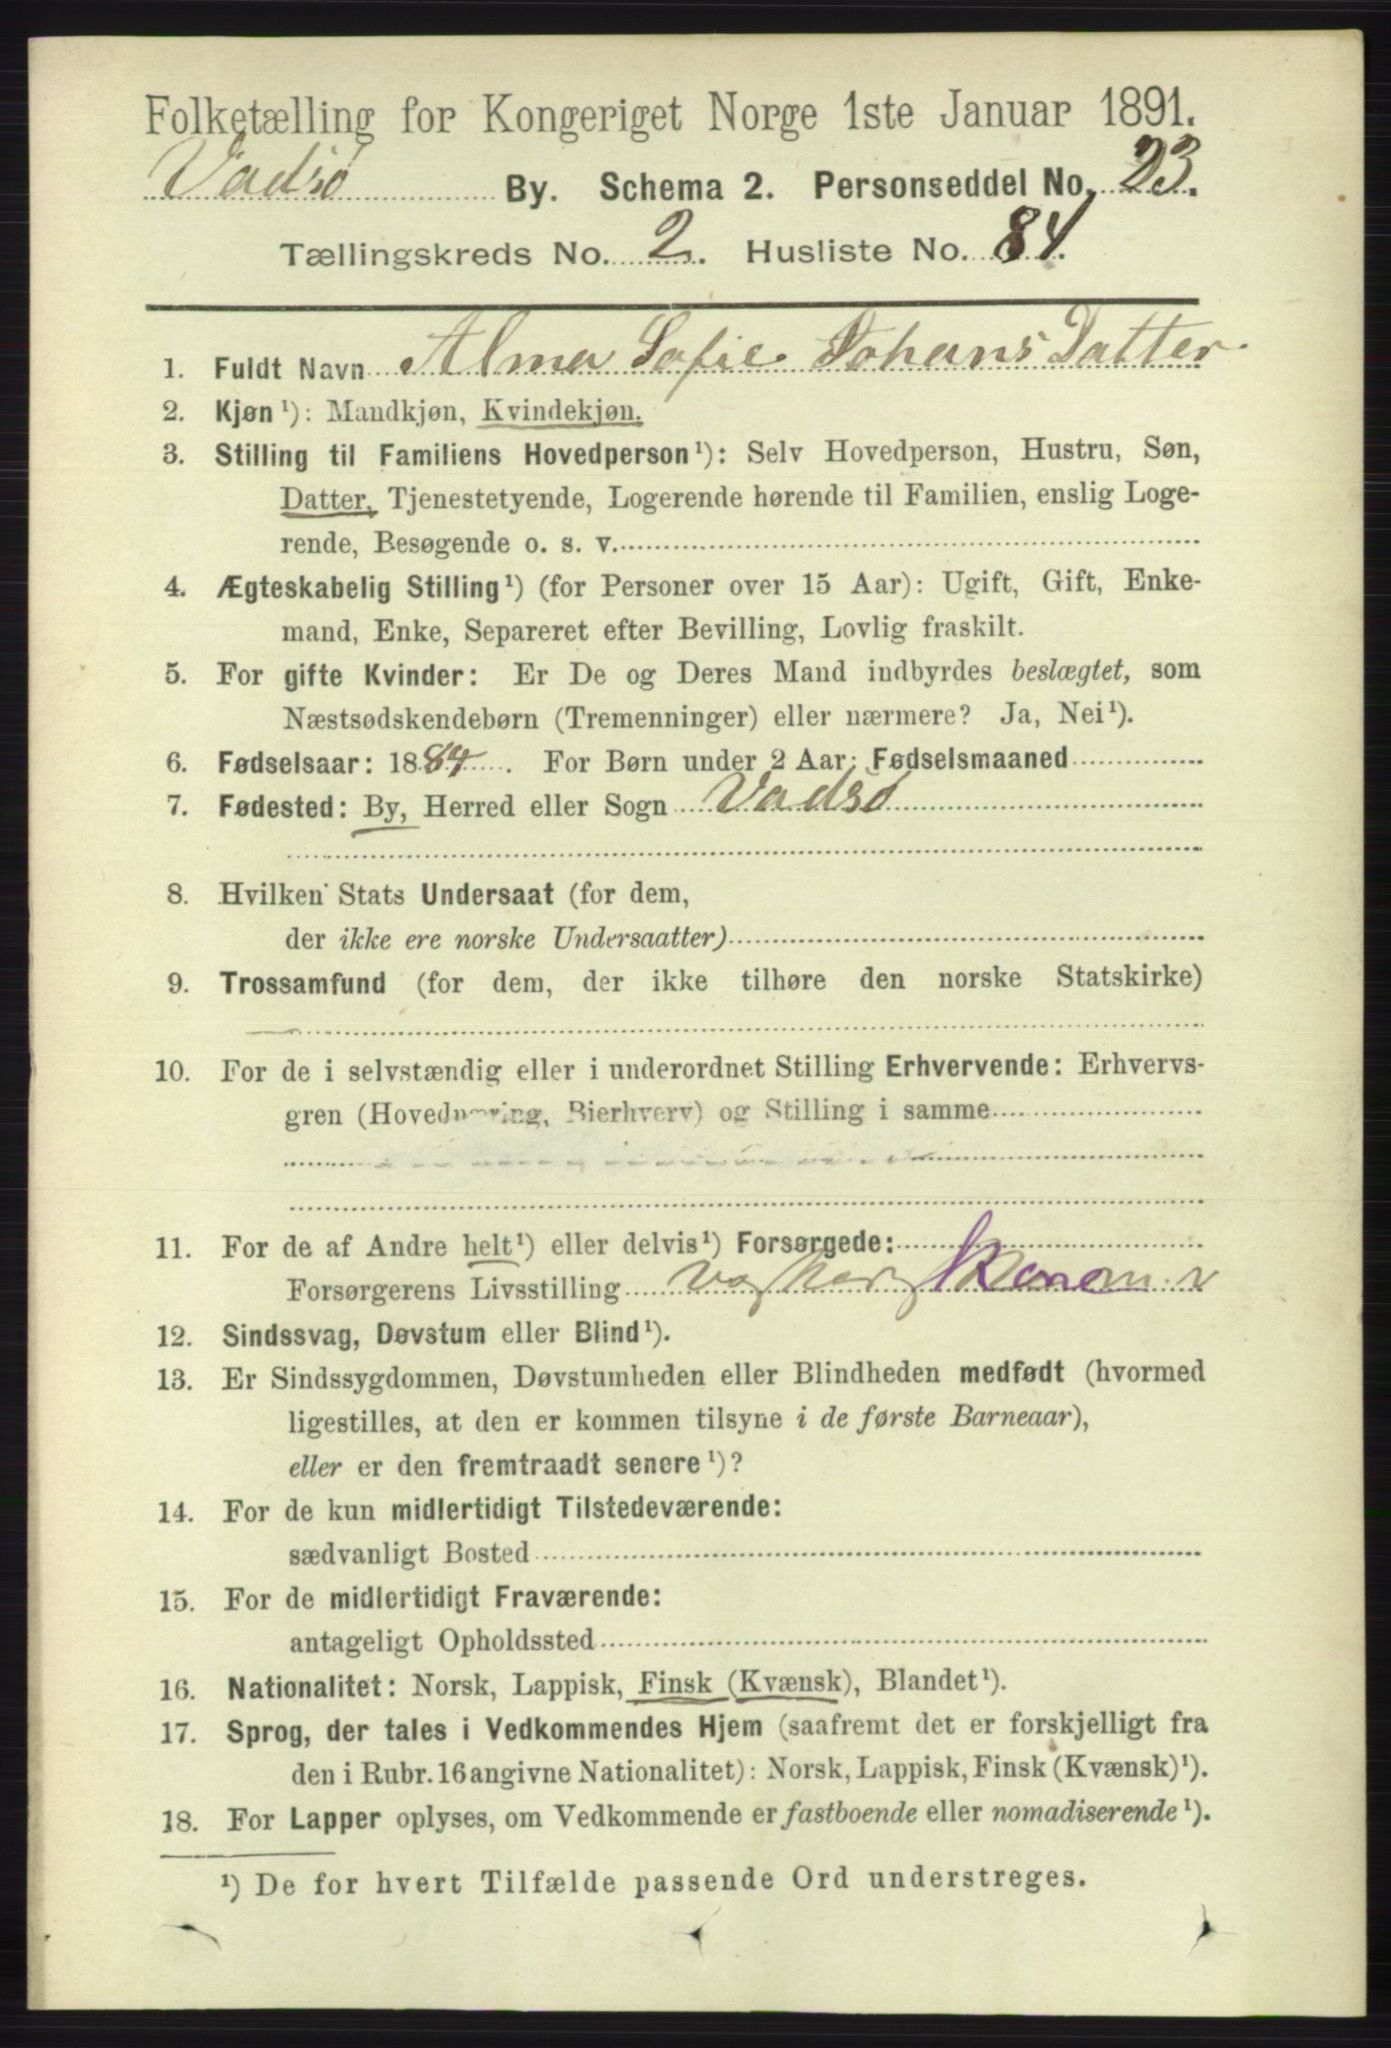 Folketælling for Kongeriget Norge 1ste Januar 1891.
Vadsø By. Schema 2. Personseddel No. 23.
Tællingskreds No. 2. Husliste No. 84.
1. Fuldt Navn Alma Sofie Johans Datter
2. Kjøn¹): Mandkjøn, Kvindekjøn.
3. Stilling til Familiens Hovedperson¹): Selv Hovedperson, Hustru, Søn,
Datter, Tjenestetyende, Logerende hørende til Familien, enslig Loge-
rende, Besøgende o. s. v.
4. Ægteskabelig Stilling¹) (for Personer over 15 Aar): Ugift, Gift, Enke-
mand, Enke, Separeret efter Bevilling, Lovlig fraskilt.
5. For gifte Kvinder: Er De og Deres Mand indbyrdes beslægtet, som
Næstsødskendebørn (Tremenninger) eller nærmere? Ja, Nei¹).
6. Fødselsaar: 1884. For Børn under 2 Aar: Fødselsmaaned
7. Fødested: By, Herred eller Sogn Vadsø
8. Hvilken Stats Undersaat (for dem,
der ikke ere norske Undersaatter)
9. Trossamfund (for dem, der ikke tilhøre den norske Statskirke)
10. For de i selvstændig eller i underordnet Stilling Erhvervende: Erhvervs-
gren (Hovednæring, Bierhverv) og Stilling i samme
11. For de af Andre helt¹) eller delvis¹) Forsørgede:
Forsørgerens Livsstilling
12. Sindssvag, Døvstum eller Blind¹).
13. Er Sindssygdommen, Døvstumheden eller Blindheden medfødt (hvormed
ligestilles, at den er kommen tilsyne i de første Barneaar),
eller er den fremtraadt senere¹)?
14. For de kun midlertidigt Tilstedeværende:
sædvanligt Bosted
15. For de midlertidigt Fraværende:
antageligt Opholdssted
16. Nationalitet: Norsk, Lappisk, Finsk (Kvænsk), Blandet¹).
17. Sprog, der tales i Vedkommendes Hjem (saafremt det er forskjelligt fra
den i Rubr. 16 angivne Nationalitet): Norsk, Lappisk, Finsk (Kvænsk)¹).
18. For Lapper oplyses, om Vedkommende er fastboende eller nomadiserende¹).
¹) De for hvert Tilfælde passende Ord understreges.